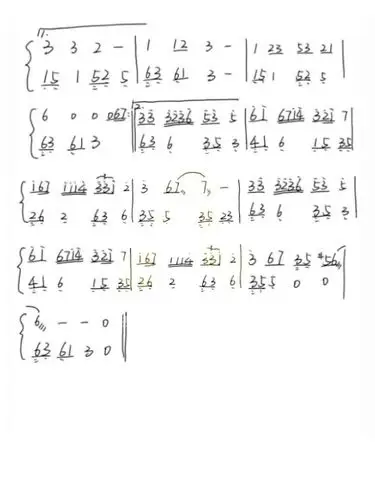 1.
3 3 2 - | 1 12 3 - | 1 23 53 21
15 1 52 5 | 63 61 3 - | 15 1 52 5
6 0 0 067 | 2. 33 3236 53 5 | 61 6714 3321 7
63 61 3 | 63 6 35 3 | 41 6 15 35
167 1114 331 2 | 3 67 7 - | 33 3236 53 5
26 2 63 6 | 35 5 35 23 | 63 6 35 3
61 6714 3321 7 | 167 1114 331 2 | 3 67 35 #56
41 6 15 35 | 26 2 63 6 | 355 0 0
6 - - 0
63 61 3 0